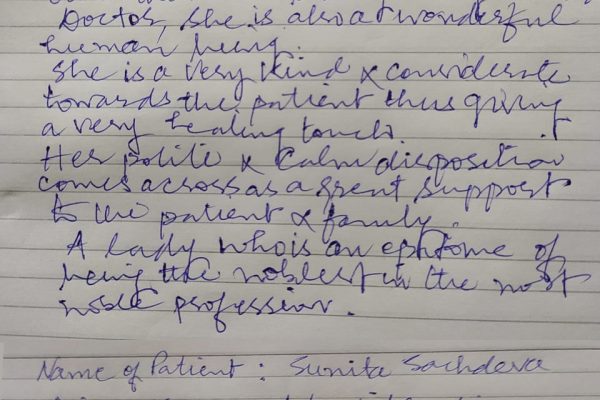 Doctor, she is also a wonderful
human being.
She is a very kind & considerate
towards the patient thus giving
a very healing touch. it
Her polite & Calm disposition
comes across as a great support
to the patient & family.
A lady who is an epitome of
being the noblest in the most
noble profession.
Name of Patient : Sunita Sachdeva